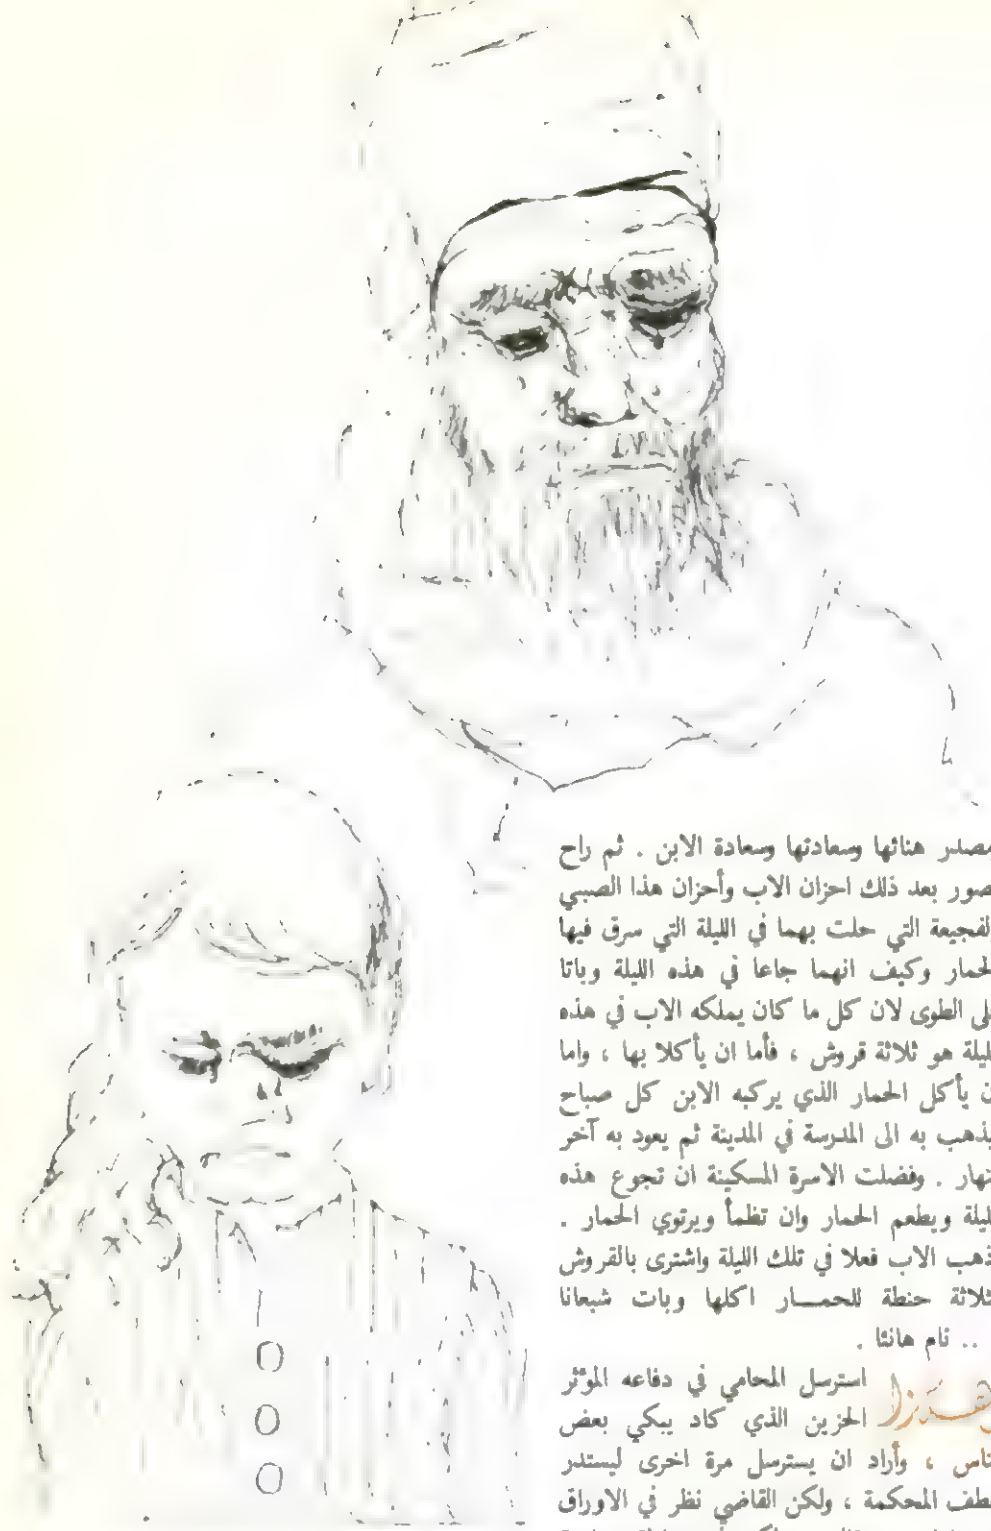 مصدر هنائها وسعادتها وسعادة الابن . ثم راح
صور بعد ذلك احزان الاب وأحزان هذا الصبي
لفجيعة التي حلت بهما في الليلة التي سرق فيها
لحمار وكيف انهما جاعا في هذه الليلة وباتا
لى الطوى لان كل ما كان يملكه الاب في هذه
ليلة هو ثلاثة قروش ، فأما ان يأكلا بها ، واما
ن يأكل الحمار الذي يركبه الابن كل صباح
يذهب به الى المدرسة في المدينة ثم يعود به آخر
نهار . وفضلت الاسرة المسكينة ان تجوع هذه
ليلة ويطعم الحمار وان تظمأ ويرتوي الحمار .
ذهب الاب فعلا في تلك الليلة واشترى بالقروش
ثلاثة حنطة للحمـــار اكلها وبات شبعانا
.. نام هانئا .
استرسل المحامي في دفاعه المؤثر
الحزين الذي كاد يبكي بعض
ناس ، وأراد ان يسترسل مرة اخرى ليستدر
طف المحكمة ، ولكن القاضي نظر في الاوراق